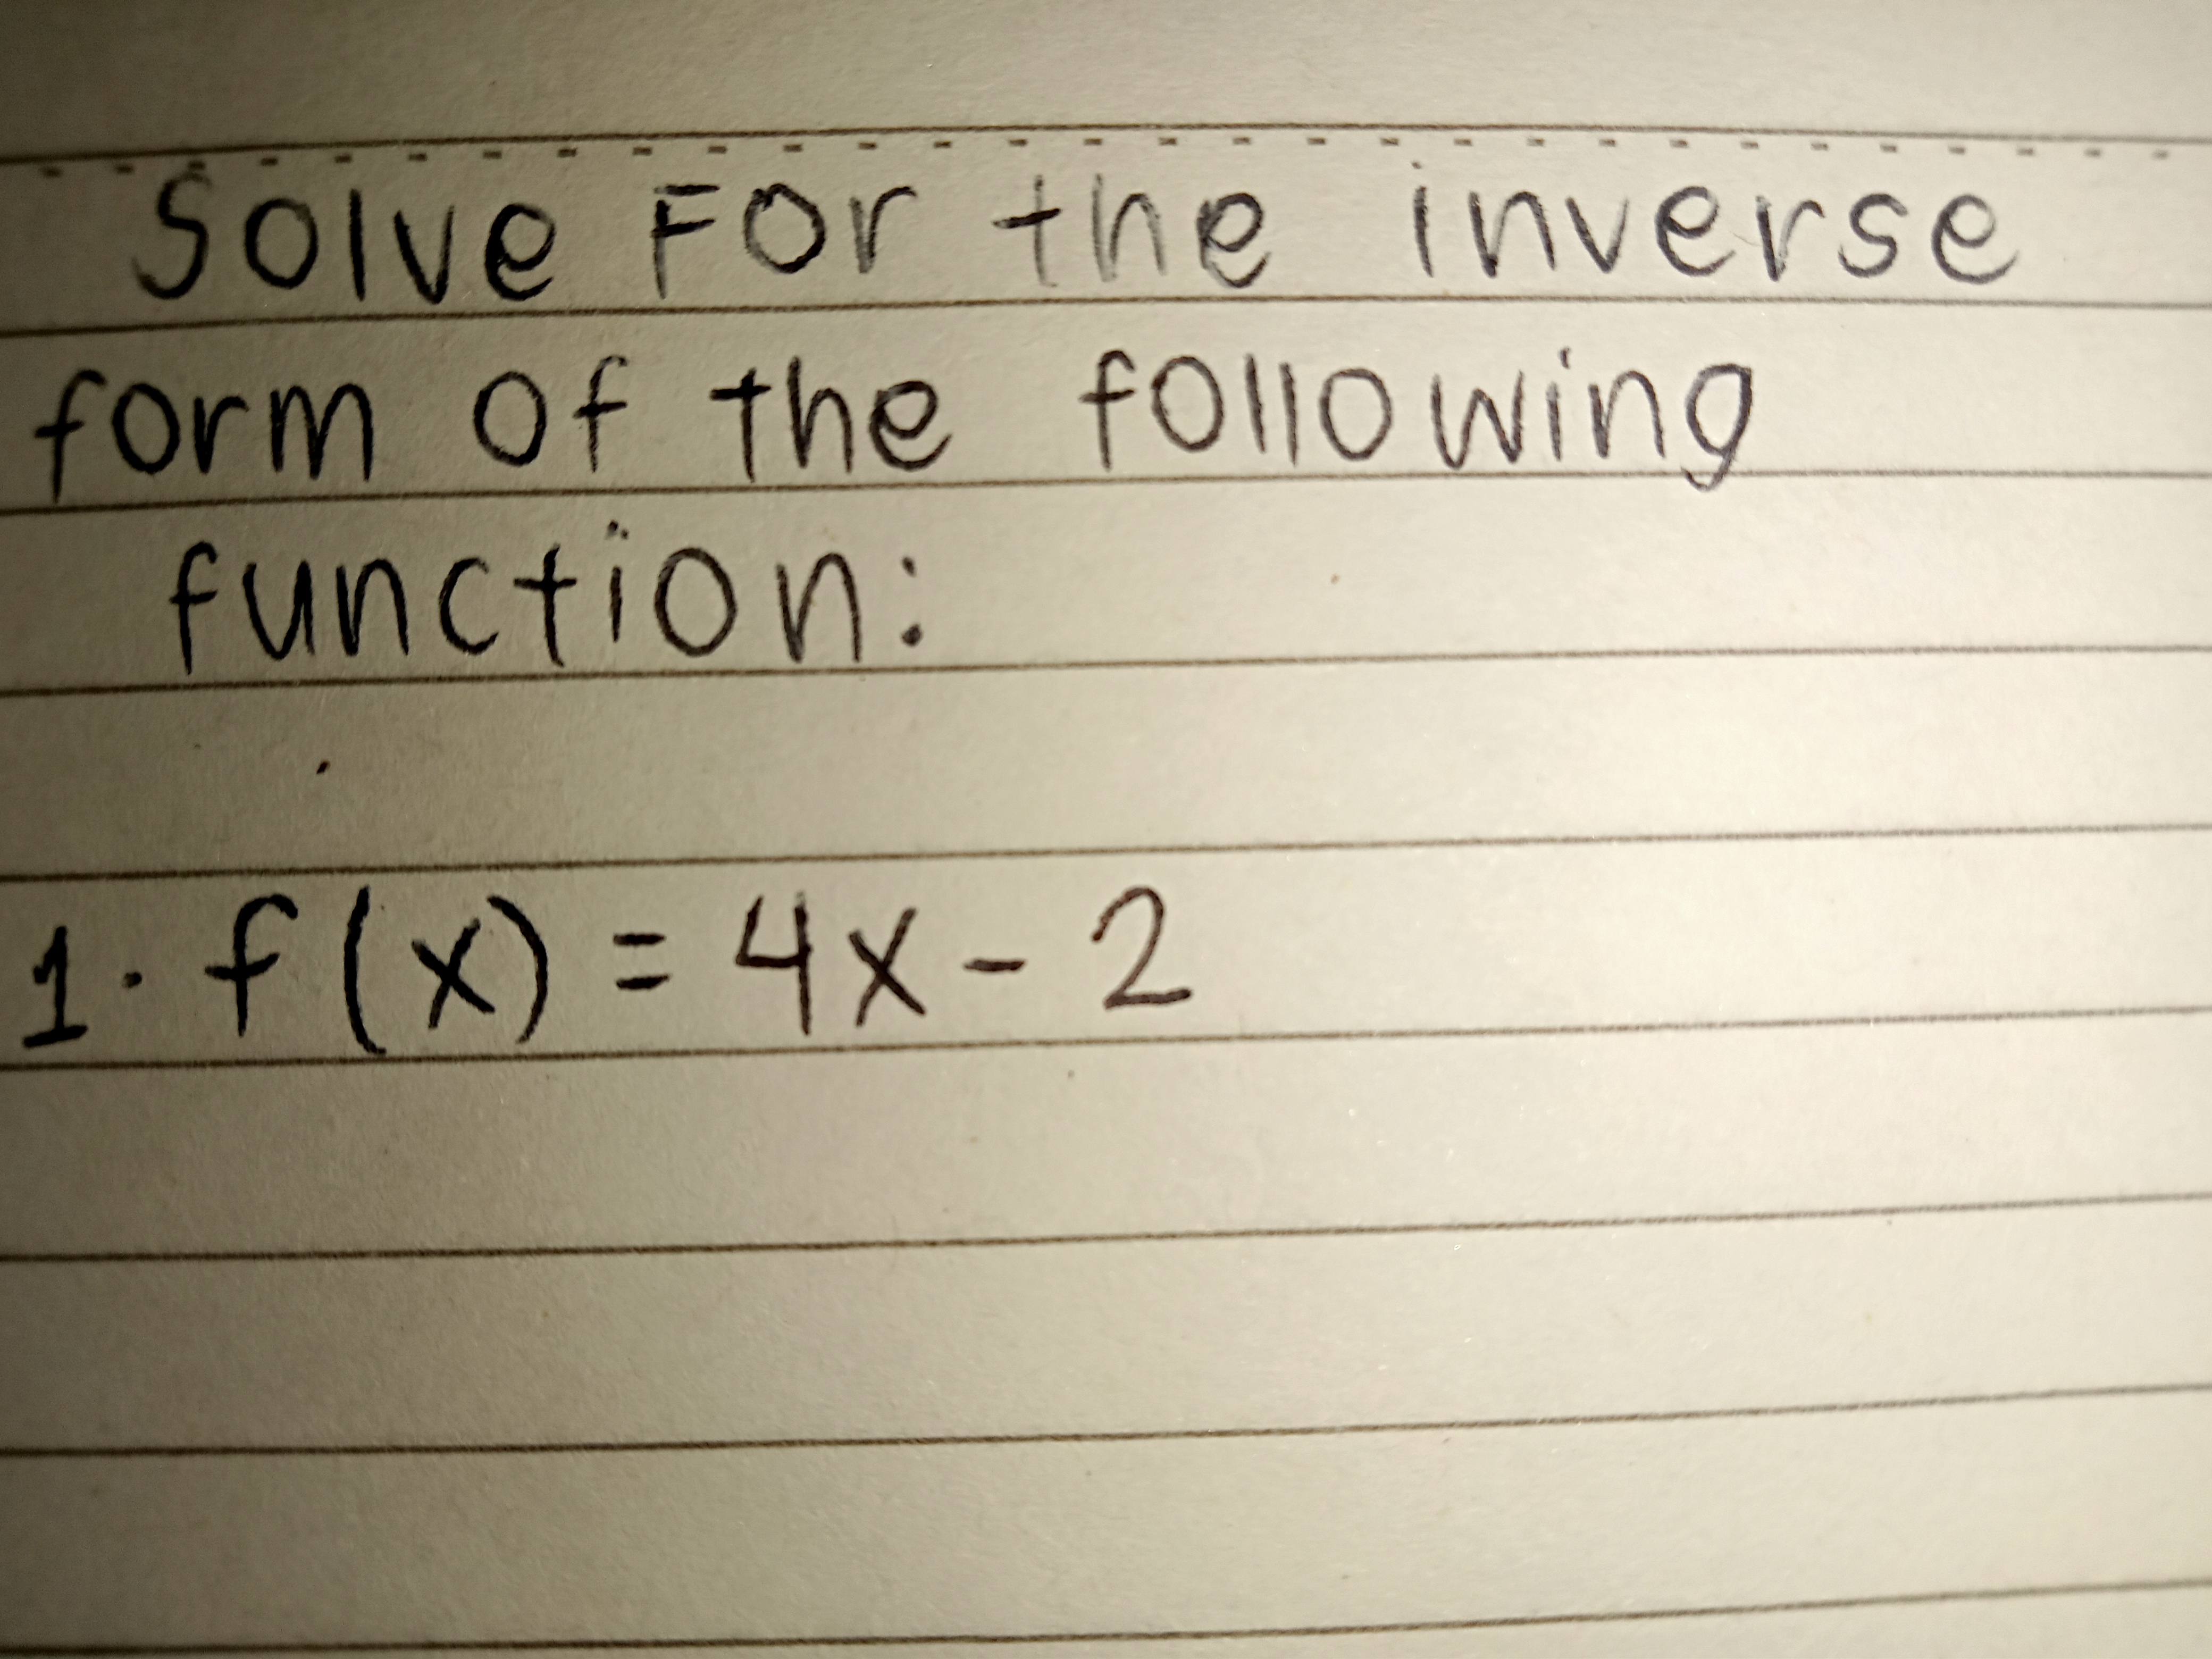 Solve For the inverse
form of the following
function:
1. f(x) = 4x - 2